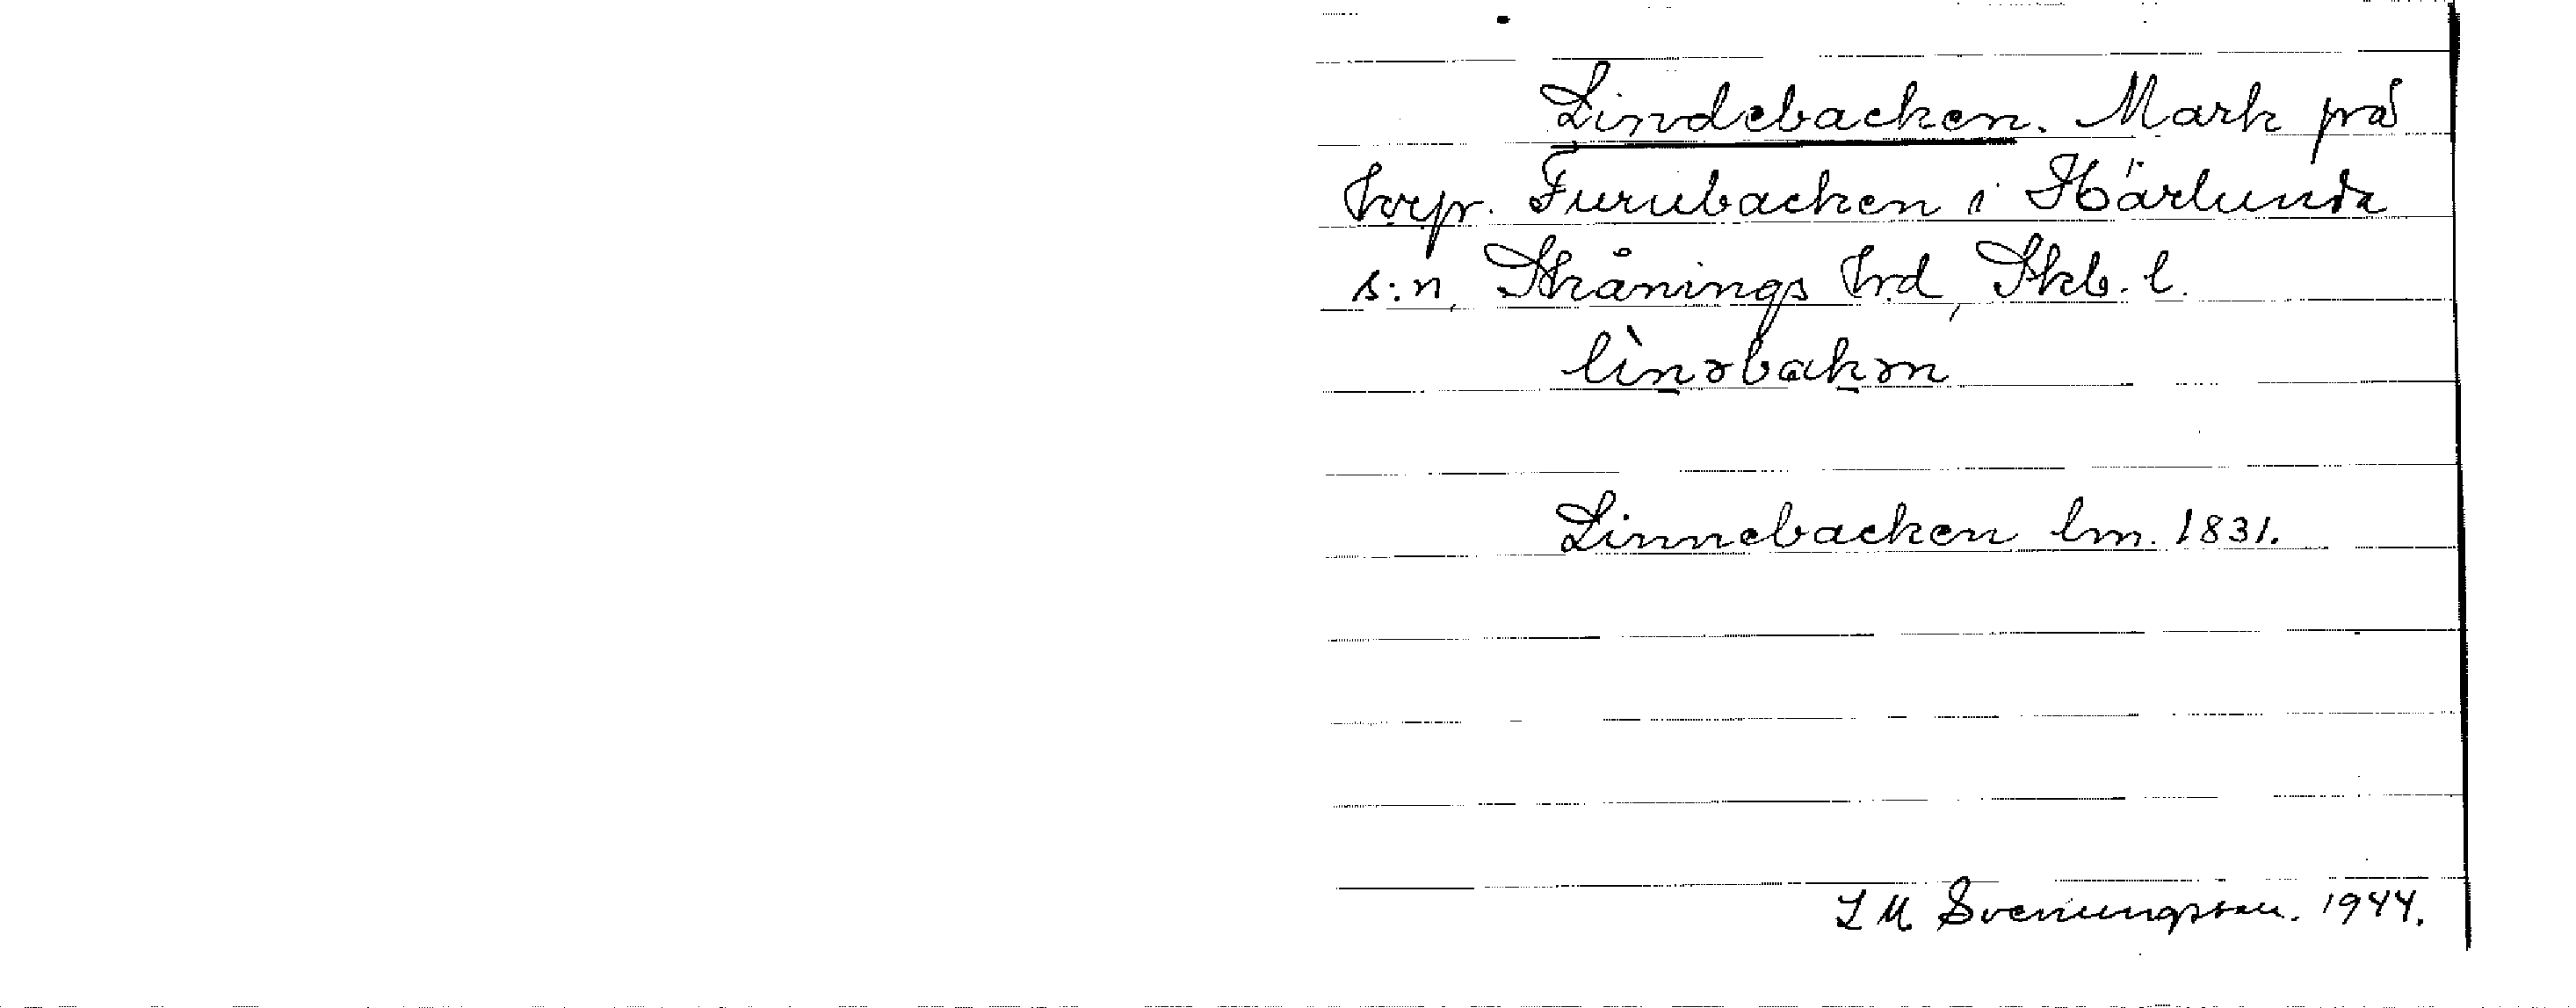 Lindebacken. Mark på
torp. Furubacken i Härlunda
s:n, Skånings hrd, Skb. l.
lìnəbakən
Linnebacken lm. 1831.
L M Svenungsson. 1944.